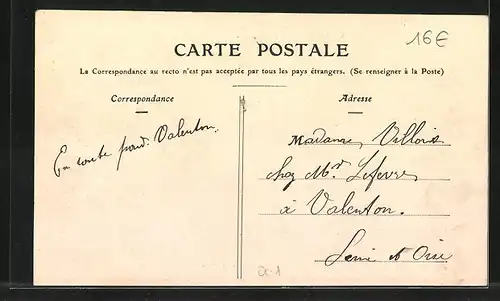 16€
CARTE POSTALE
La Correspondance au recto n'est pas acceptée par tous les pays étrangers. (Se renseigner à la Poste)
Correspondance
Adresse
En route pour Valenton.
Madame Villois
chez Mr Lefevre
à Valenton.
Seine et Oise